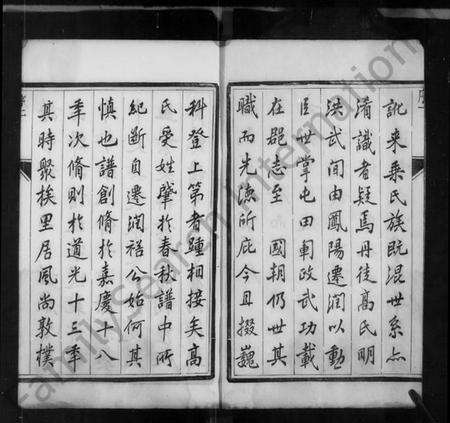 訛来乗氏族既混世系亦
淆識者疑焉丹徒高氏明
洪武间由鳳陽遷潤以勳
臣世掌屯田軍政武功載
在郡志至 國朝仍世其
職而先澤所庇今且掇巍
科登上第者踵相接矣高
氏受姓肇於春秋譜中所
紀断自遷潤裕公始何其
慎也譜創脩於嘉慶十八
年次脩則於道光十三年
其時聚族里居風尚敦樸
FamilySearch International